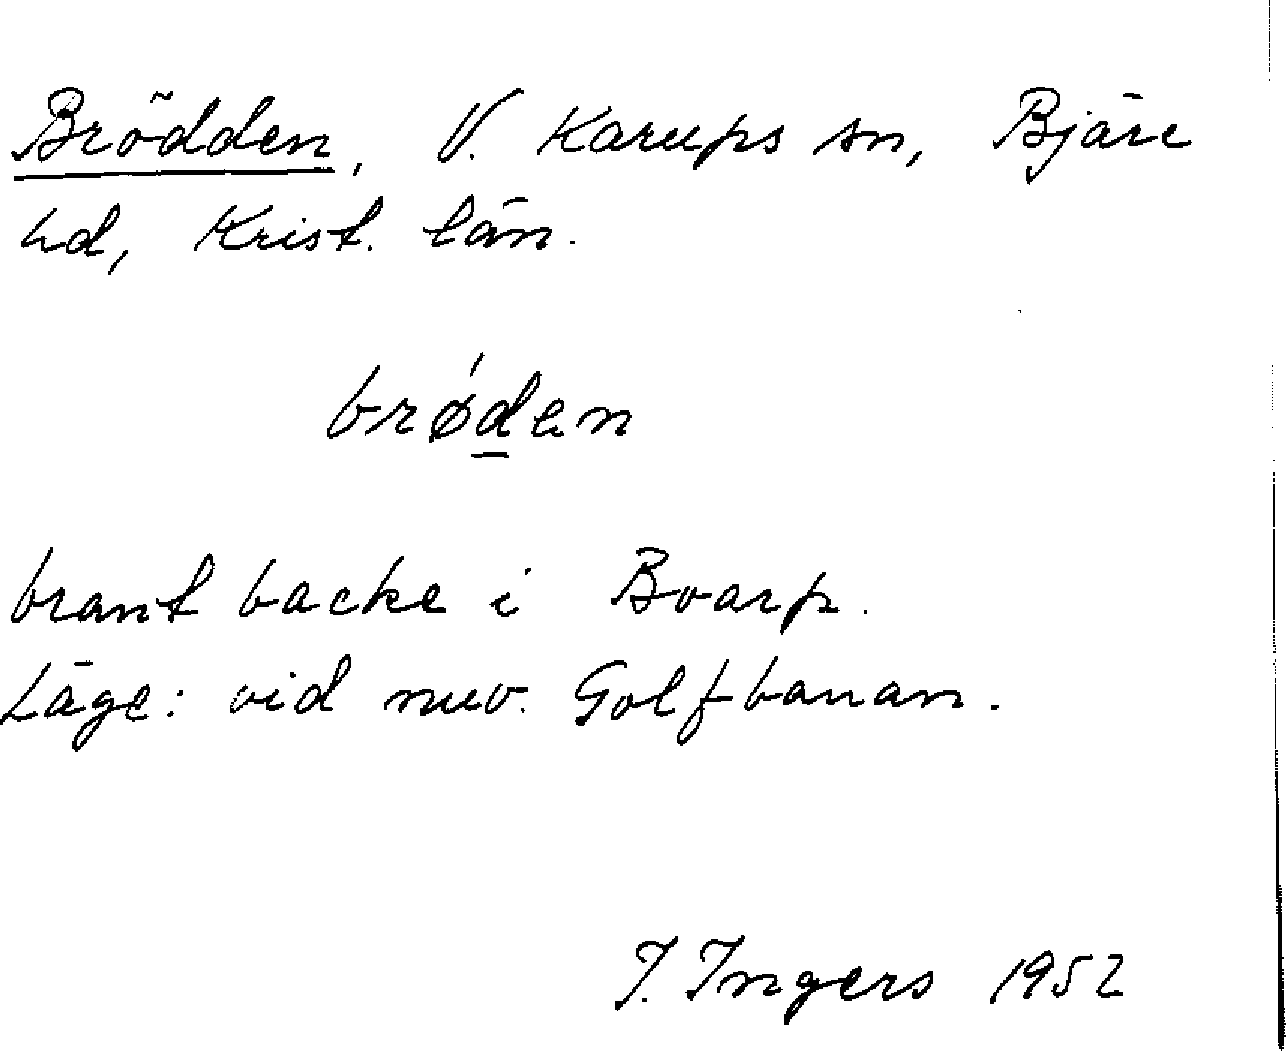 Brödden, V. Karups sn, Bjäre
hd, Krist. län.
brǿd̲en
brant backe i Boarp.
Läge: vid nuv. Golfbanan.
I. Ingers 1952